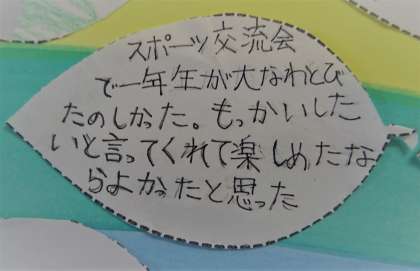 スポーツ交流会
で一年生が大なわとび
たのしかった。もっかいした
いと言ってくれて楽しめたな
らよかったと思った